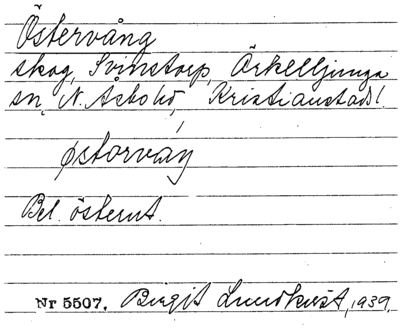 Östervång
skog, Svinstorp, Örkelljunga
sn, N. Åsbo hd, Kristianstads l.
østərváŋ
Bel. österut.
Nr 5507. Birgit Lundkvist, 1939.